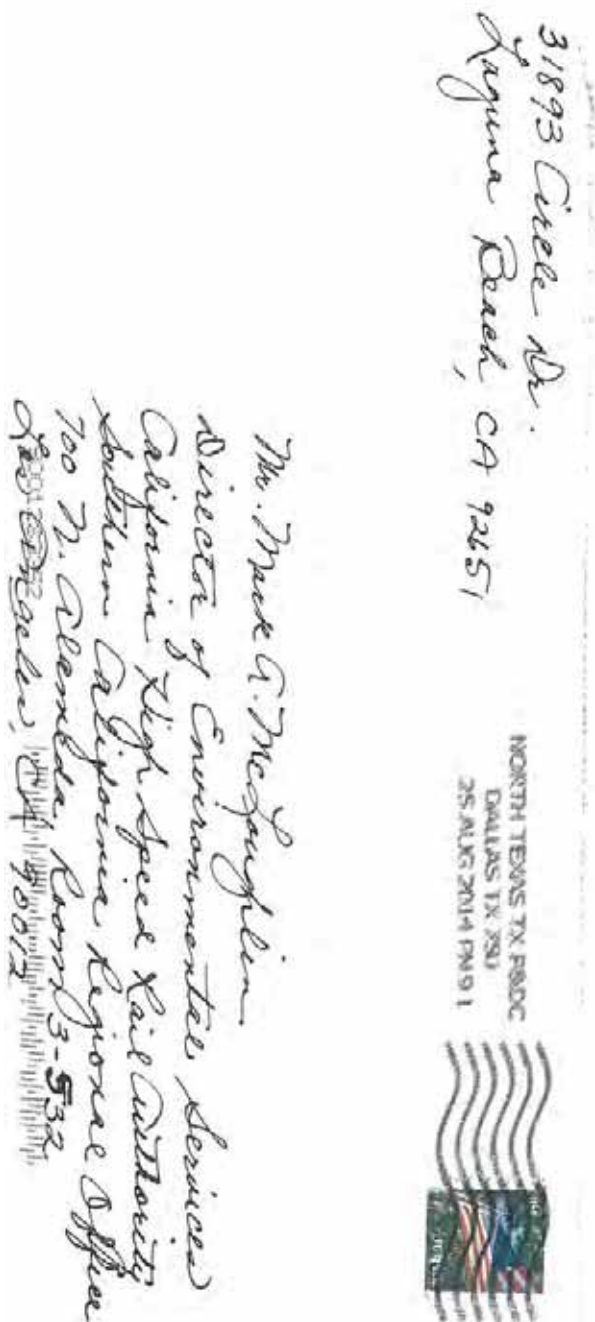 31893 Circle Dr.
Laguna Beach, CA 92651
NORTH TEXAS TX P&DC
DALLAS TX 750
25 AUG 2014 PM 9 L
Mr. Mark A. McLoughlin
Director of Environmental Services
California High Speed Rail Authority
Southern California Regional Office
700 N. Alameda, Room 3-532
Los Angeles, CA 90012